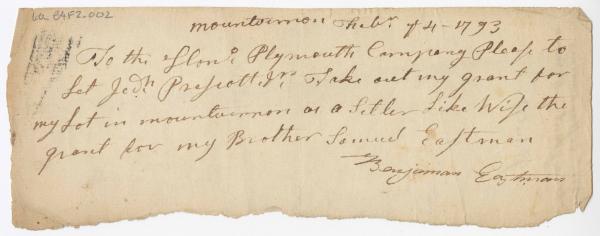 6a E4F2.002
mountvernon Febr ye 4 - 1793
To the Hon.e Plymouth Company Please to
Let Jedh Prescott Jr. Take out my grant for
my Lot in mountvernon as a Setler Like Wise the
grant for my Brother Samuel Eastman
Benjaman Eastman